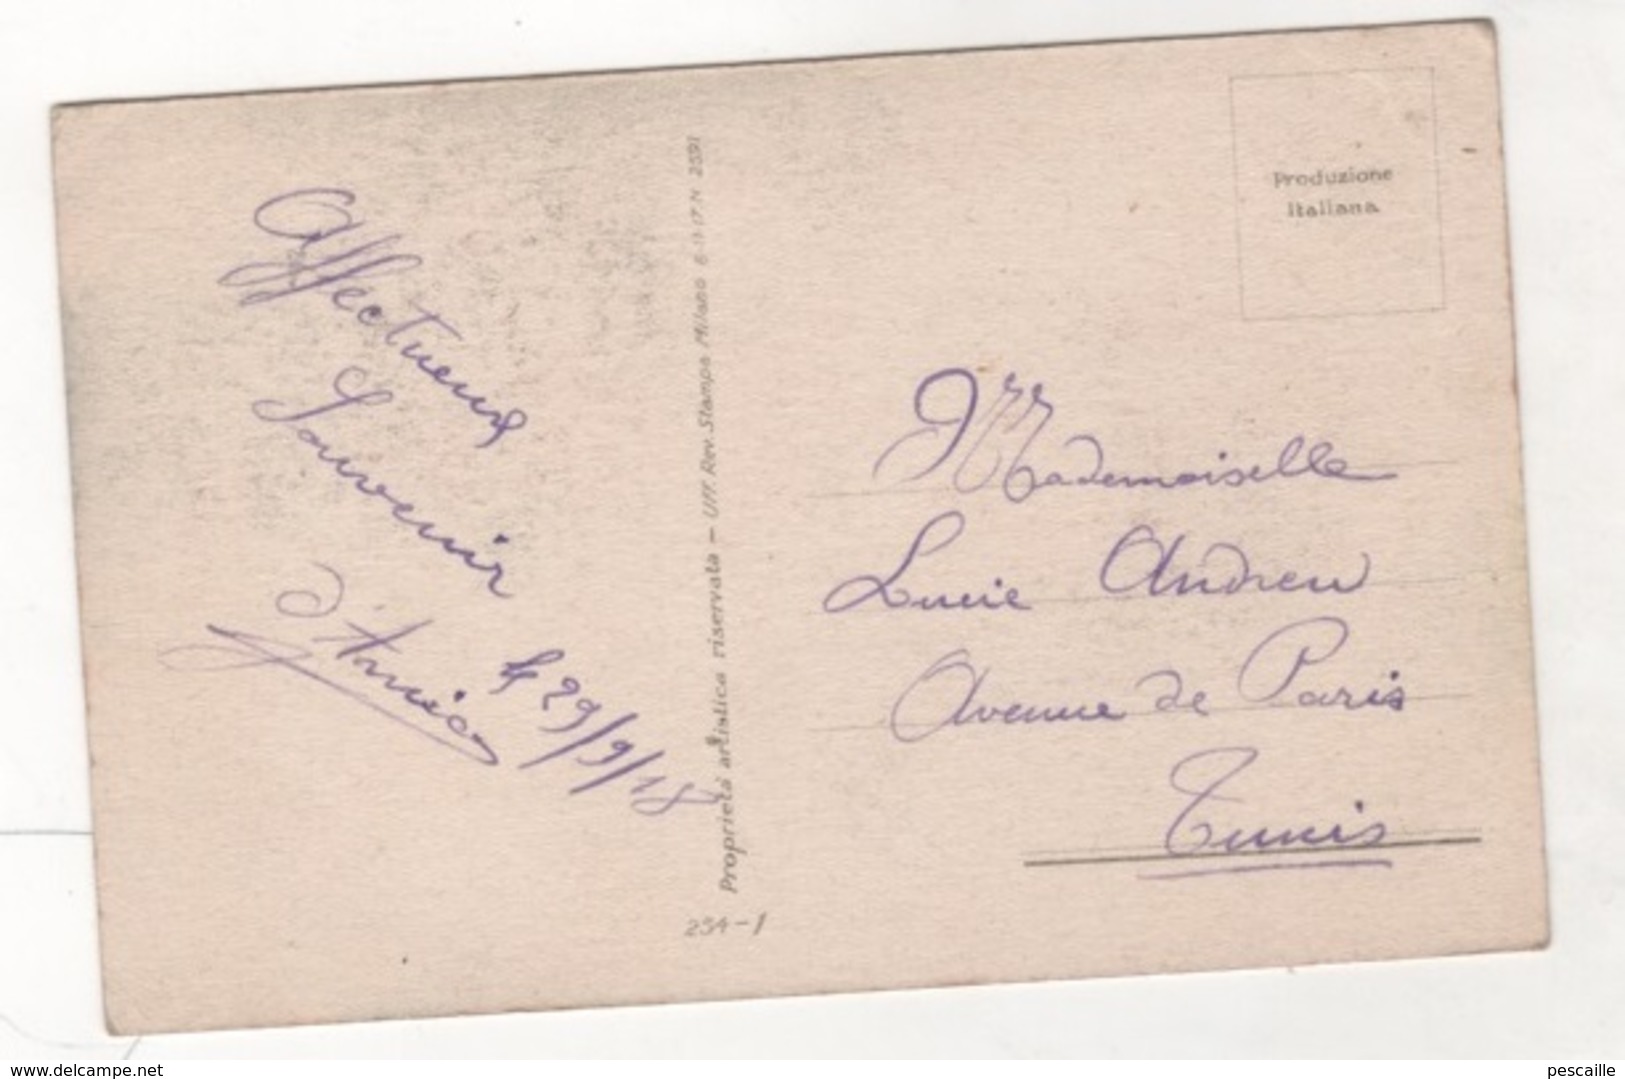 Affectueux
Souvenir
d'Annica
29/9/18
Proprietà artistica riservata – Uff. Rev. Stampa Milano 6-11-17. N 2591
254-1
Produzione
Italiana
Mademoiselle
Lucie Andreu
Avenue de Paris
Tunis
www.delcampe.net
pescaille